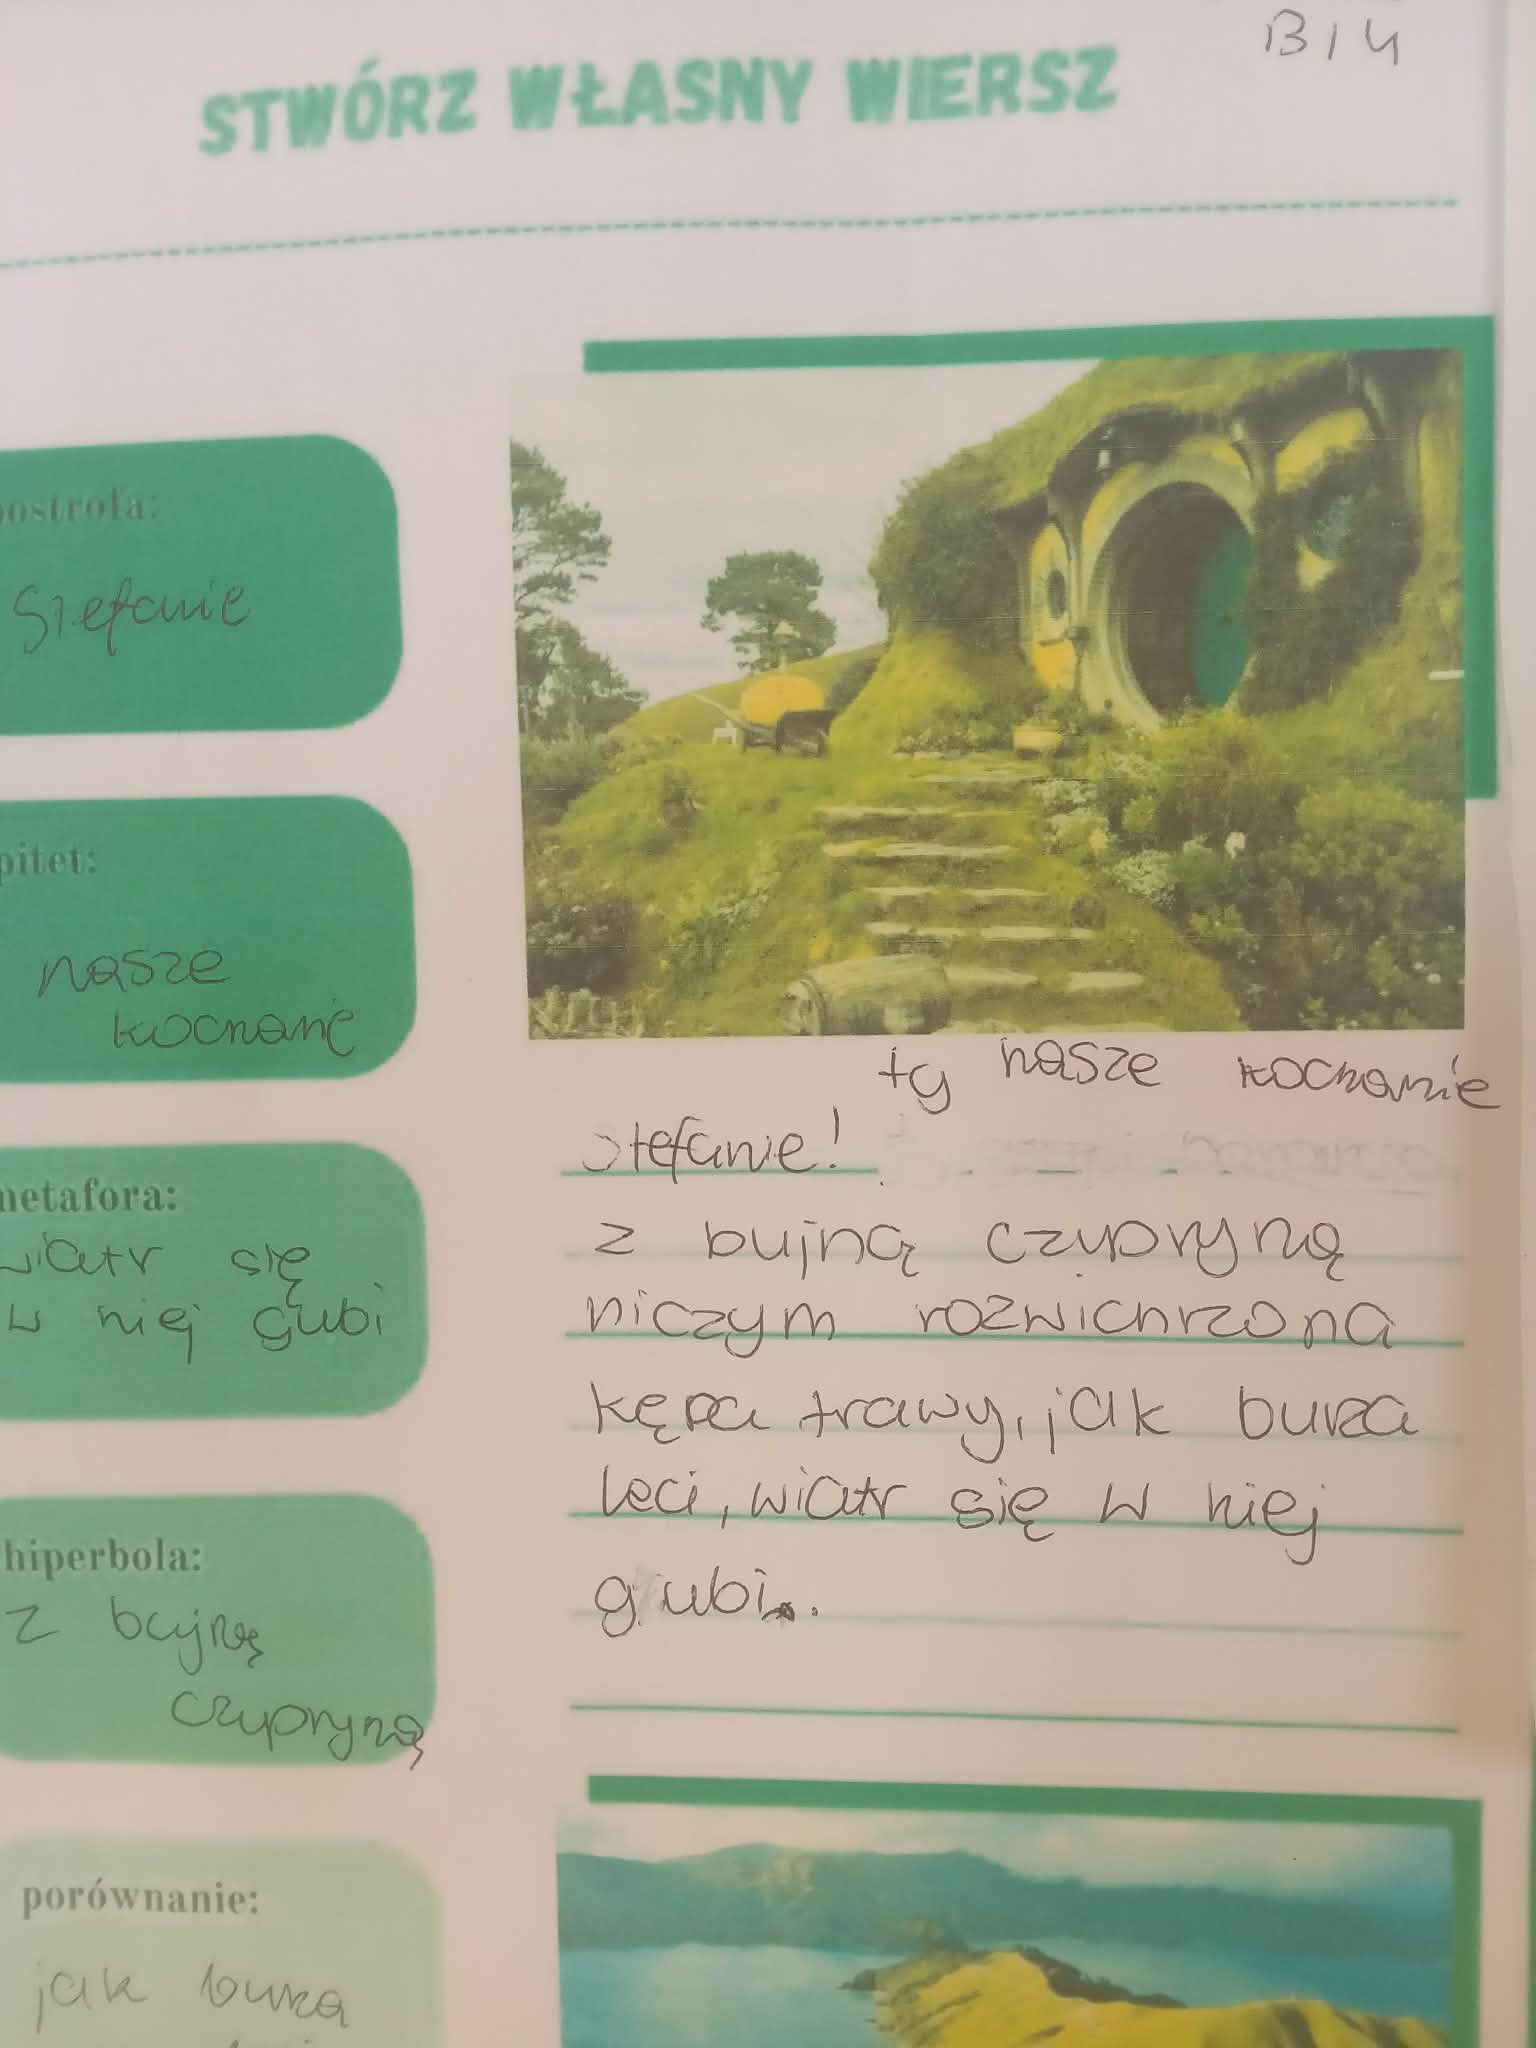 B14
STWÓRZ WŁASNY WIERSZ
postrofa:
Stefanie
pitet:
nasze
kochanie
metafora:
wiatr się
w niej gubi
hiperbola:
z bujną
czupryną
porównanie:
jak burza
ty nasze kochanie
Stefanie!
z bujną czupryną
niczym rozwichrzona
kępa trawy, jak burza
leci, wiatr się w niej
gubi..